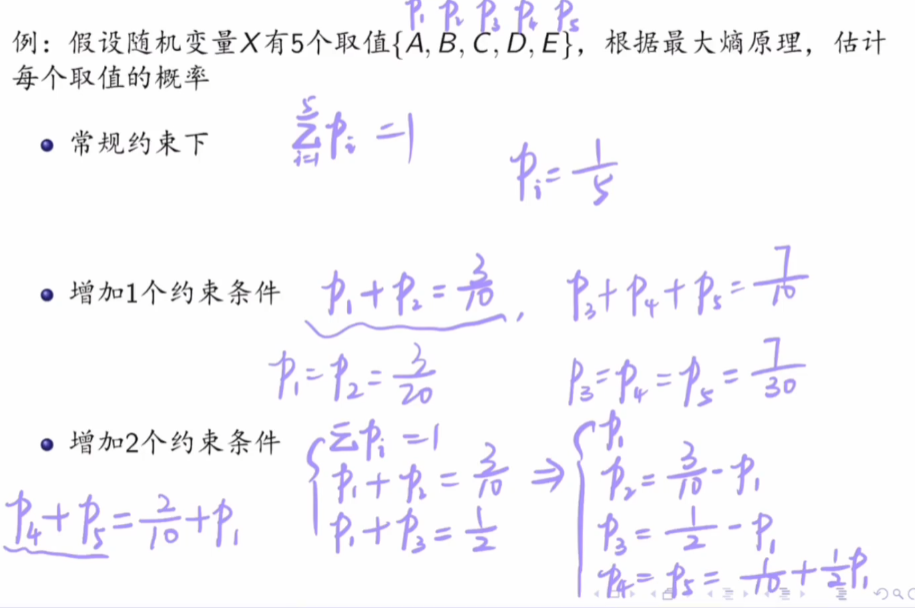 p₁ p₂ p₃ p₄ p₅
例：假设随机变量X有5个取值{A, B, C, D, E}，根据最大熵原理，估计
每个取值的概率
常规约束下 \sum_{i=1}^{5} pᵢ = 1
pᵢ = 1/5
增加1个约束条件 p₁ + p₂ = 3/10， p₃ + p₄ + p₅ = 7/10
p₁ = p₂ = 3/20 p₃ = p₄ = p₅ = 7/30
增加2个约束条件 { Σpᵢ = 1 { p₁
p₁ + p₂ = 3/10 ⇒ p₂ = 3/10 - p₁
p₄ + p₅ = 2/10 + p₁ p₁ + p₃ = 1/2 p₃ = 1/2 - p₁
p₄ = p₅ = 1/10 + 1/2 p₁